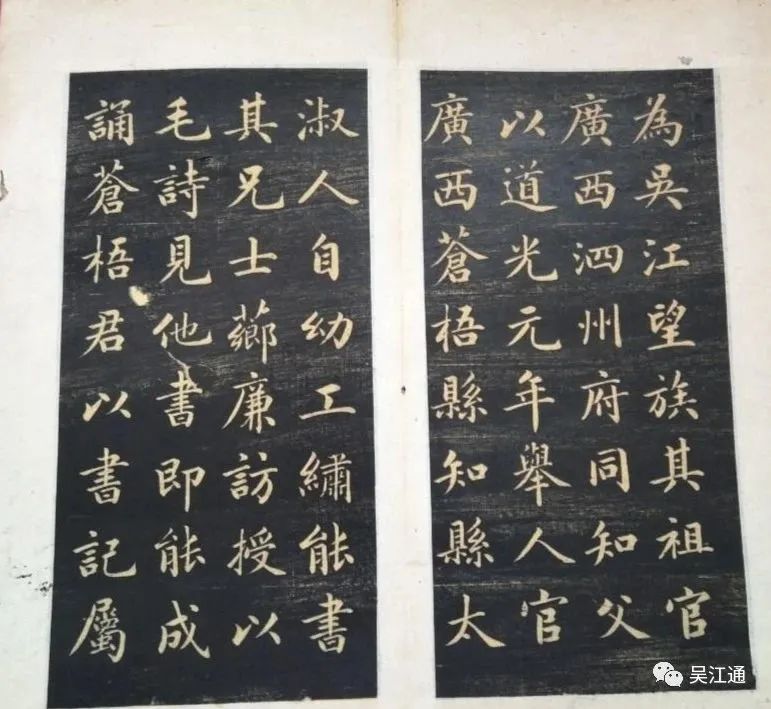 為吳江望族其祖官
廣西泗州府同知父
以道光元年舉人官
廣西蒼梧縣知縣太
淑人自幼工繡能書
其兄士薌廉訪授以
毛詩見他書即能成
誦蒼梧君以書記屬
吴江通